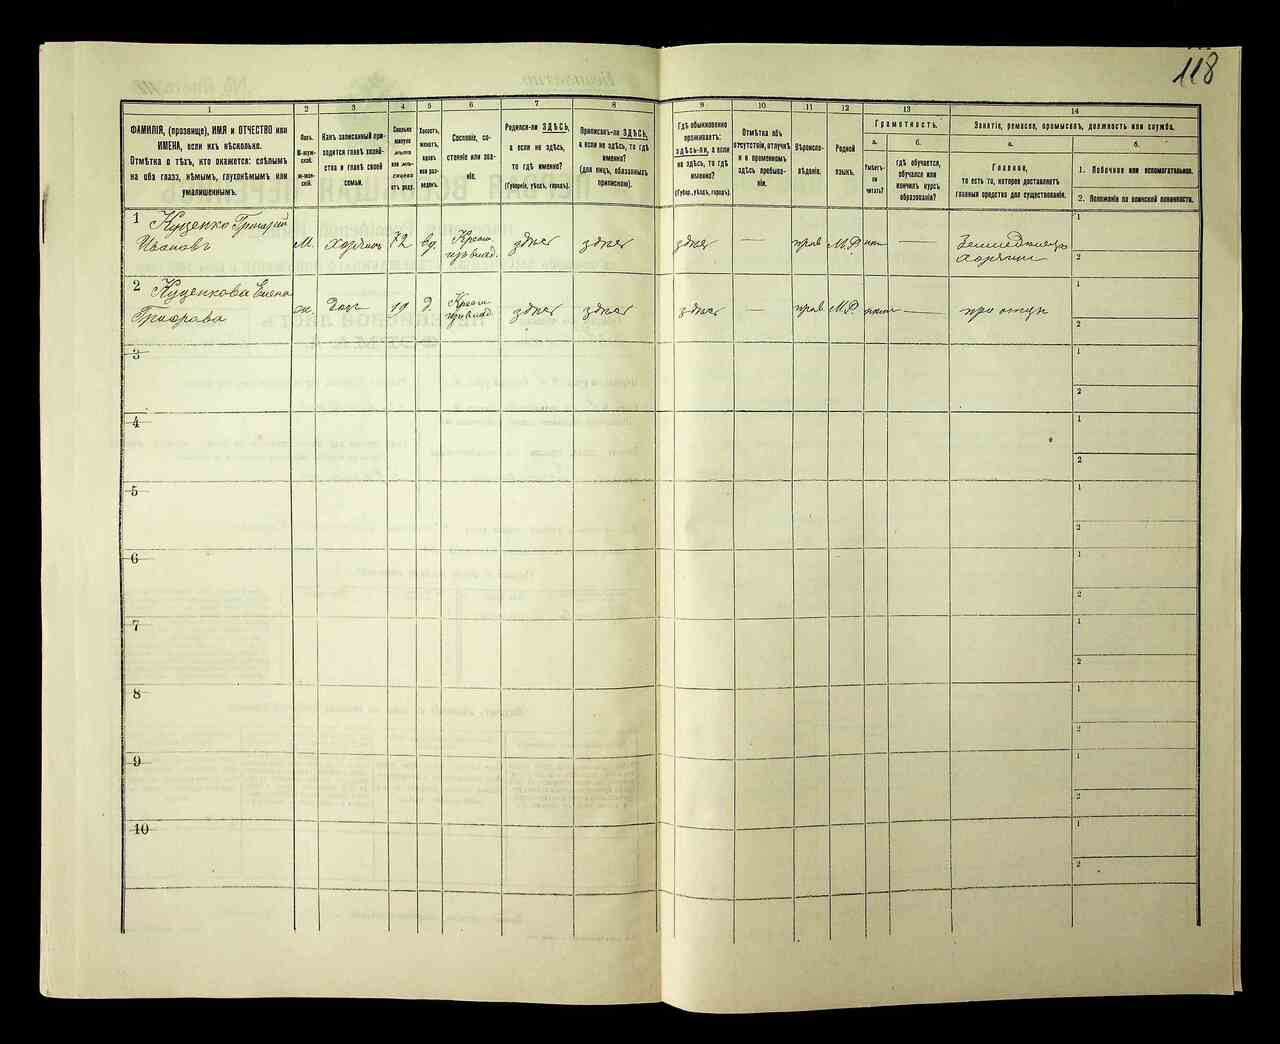 118
1
2
3
4
5
6
7
8
9
10
11
12
13
14
ФАМИЛІЯ, (прозвище), ИМЯ и ОТЧЕСТВО или
ИМЕНА, если ихъ нѣсколько.
Отмѣтка о тѣхъ, кто окажется: слѣпымъ
на оба глаза, нѣмымъ, глухонѣмымъ или
умалишеннымъ.
Полъ.
М-муж-
ской.
ж-жен-
скій.
Какъ записанный при-
ходится главѣ хозяй-
ства и главѣ своей
семьи.
Сколько
минуло
лѣтъ
или мѣ-
сяцевъ
отъ роду.
Холостъ,
женатъ,
вдовъ
или раз-
веденъ.
Сословіе, со-
стояніе или зва-
ніе.
Родился-ли ЗДѢСЬ,
а если не здѣсь,
то гдѣ именно?
(Губернія, уѣздъ, городъ).
Приписанъ-ли ЗДѢСЬ,
а если не здѣсь, то гдѣ
именно?
(для лицъ, обязанныхъ
припиской).
Гдѣ обыкновенно
проживаетъ:
здѣсь-ли, а если
не здѣсь, то гдѣ
именно?
(Губер, уѣздъ, городъ).
Отмѣтка объ
отсутствіи, отлучкѣ
и о временномъ
здѣсь пребыва-
ніи.
Вѣроиспо-
вѣданіе.
Родной
языкъ.
Грамотность.
а.
Умѣетъ-
ли
читать?
б.
гдѣ обучается,
обучался или
кончилъ курсъ
образованія?
Занятіе, ремесло, промыселъ, должность или служба.
а.
Главное,
то есть то, которое доставляетъ
главныя средства для существованія.
б.
1. Побочное или вспомогательное.
2. Положеніе по воинской повинности.
1 Куценко Григорій
Ивановъ
М. хозяинъ 72 вд. Крест. здѣсь здѣсь здѣсь — прав М.Р —
хозяинъ
1
2
2 Куценкова Елена
ж. доч 19 д. Крест. здѣсь здѣсь здѣсь — прав М.Р. — при отцѣ
1
2
3
1
2
4
1
2
5
1
2
6
1
2
7
1
2
8
1
2
9
1
2
10
1
2